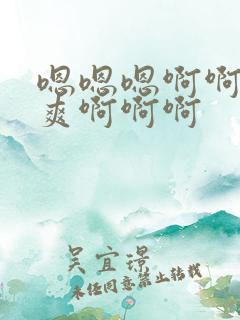 嗯嗯嗯啊啊
爽啊啊啊
吴宜璟
未经同意禁止转载